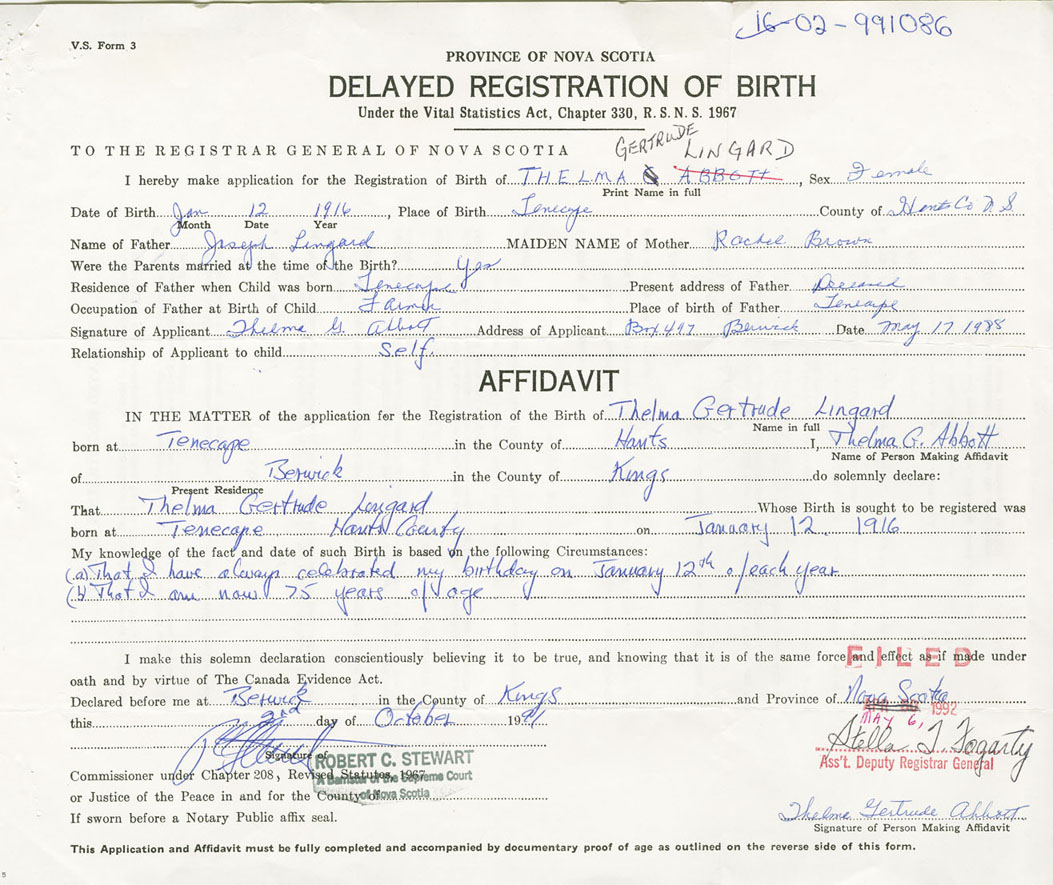 16-02-991086
V.S. Form 3
PROVINCE OF NOVA SCOTIA
DELAYED REGISTRATION OF BIRTH
Under the Vital Statistics Act, Chapter 330, R.S.N.S. 1967
GERTRUDE LINGARD
TO THE REGISTRAR GENERAL OF NOVA SCOTIA
I hereby make application for the Registration of Birth of THELMA G ABBOTT, Sex Female
Print Name in full
Date of Birth Jan 12 1916, Place of Birth Tenecape County of Hants Co N S
Month Date Year
Name of Father Joseph Lingard MAIDEN NAME of Mother Rachel Brown
Were the Parents married at the time of the Birth? Yes
Residence of Father when Child was born Tenecape Present address of Father Deceased
Occupation of Father at Birth of Child Farmer Place of birth of Father Tenecape
Signature of Applicant Thelma G. Abbott Address of Applicant Box 497 Berwick Date May 17 1988
Relationship of Applicant to child Self.
AFFIDAVIT
IN THE MATTER of the application for the Registration of the Birth of Thelma Gertrude Lingard
Name in full
born at Tenecape in the County of Hants I, Thelma G. Abbott
Name of Person Making Affidavit
of Berwick in the County of Kings do solemnly declare:
Present Residence
That Thelma Gertrude Lingard Whose Birth is sought to be registered was
born at Tenecape Hants County on January 12, 1916
My knowledge of the fact and date of such Birth is based on the following Circumstances:
(a) That I have always celebrated my birthday on January 12th of each year
(b) That I am now 75 years of age
I make this solemn declaration conscientiously believing it to be true, and knowing that it is of the same force and effect as if made under
FILED
oath and by virtue of The Canada Evidence Act.
Declared before me at Berwick in the County of Kings and Province of Nova Scotia
1992
MAY 6,
this 2nd day of October 1991
Stella T. Fogarty
Signature of
ROBERT C. STEWART
A Barrister of the Supreme Court
of Nova Scotia
Ass't. Deputy Registrar General
Commissioner under Chapter 208, Revised Statutes, 1967
or Justice of the Peace in and for the County of
Thelma Gertrude Abbott
If sworn before a Notary Public affix seal.
Signature of Person Making Affidavit
This Application and Affidavit must be fully completed and accompanied by documentary proof of age as outlined on the reverse side of this form.
5